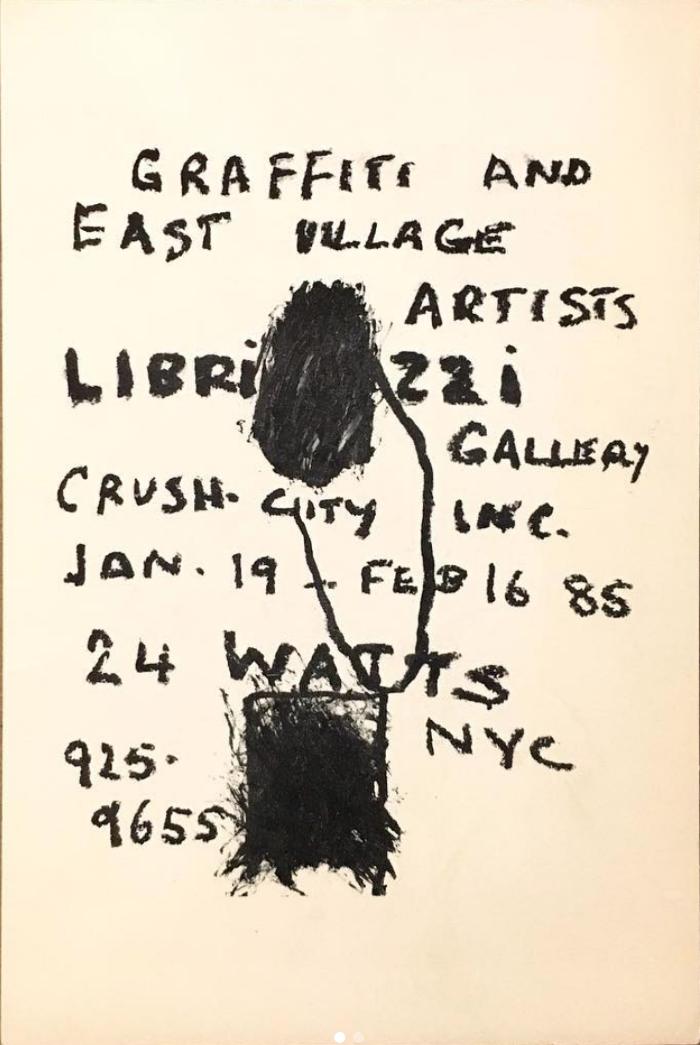 GRAFFITI AND
EAST VILLAGE
ARTISTS
LIBRIZZI
GALLERY
CRUSH· CITY INC.
JAN. 19 - FEB 16 85
24 WATTS
NYC
925·
9655